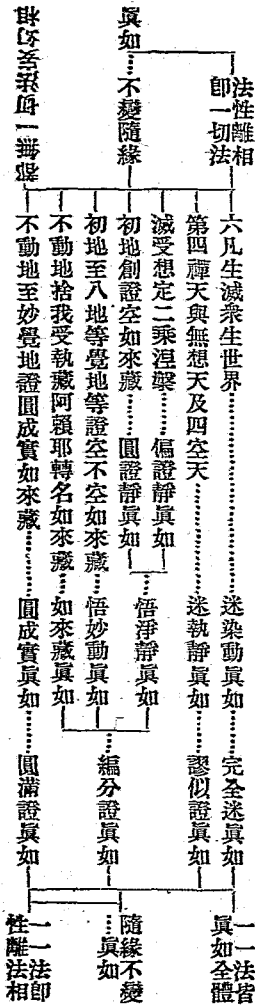 眞如……不變隨緣
法性離相
卽一切法
都無一切法妄幻相
六凡生滅衆生世界……迷染動眞如……完全迷眞如
第四禪天與無想天及四空天……迷執靜眞如……謬似證眞如
滅受想定二乘涅槃……偏證靜眞如
初地創證空如來藏……圓證靜眞如
悟淨靜眞如
初地至八地等覺地等證空不空如來藏……悟妙動眞如
不動地捨我受執藏阿賴耶轉名如來藏……如來藏眞如
編分證眞如
不動地至妙覺地證圓成實如來藏……圓成實眞如……圓滿證眞如
一一法皆
眞如全體
隨緣不變
……眞如
一一法卽
性離法相